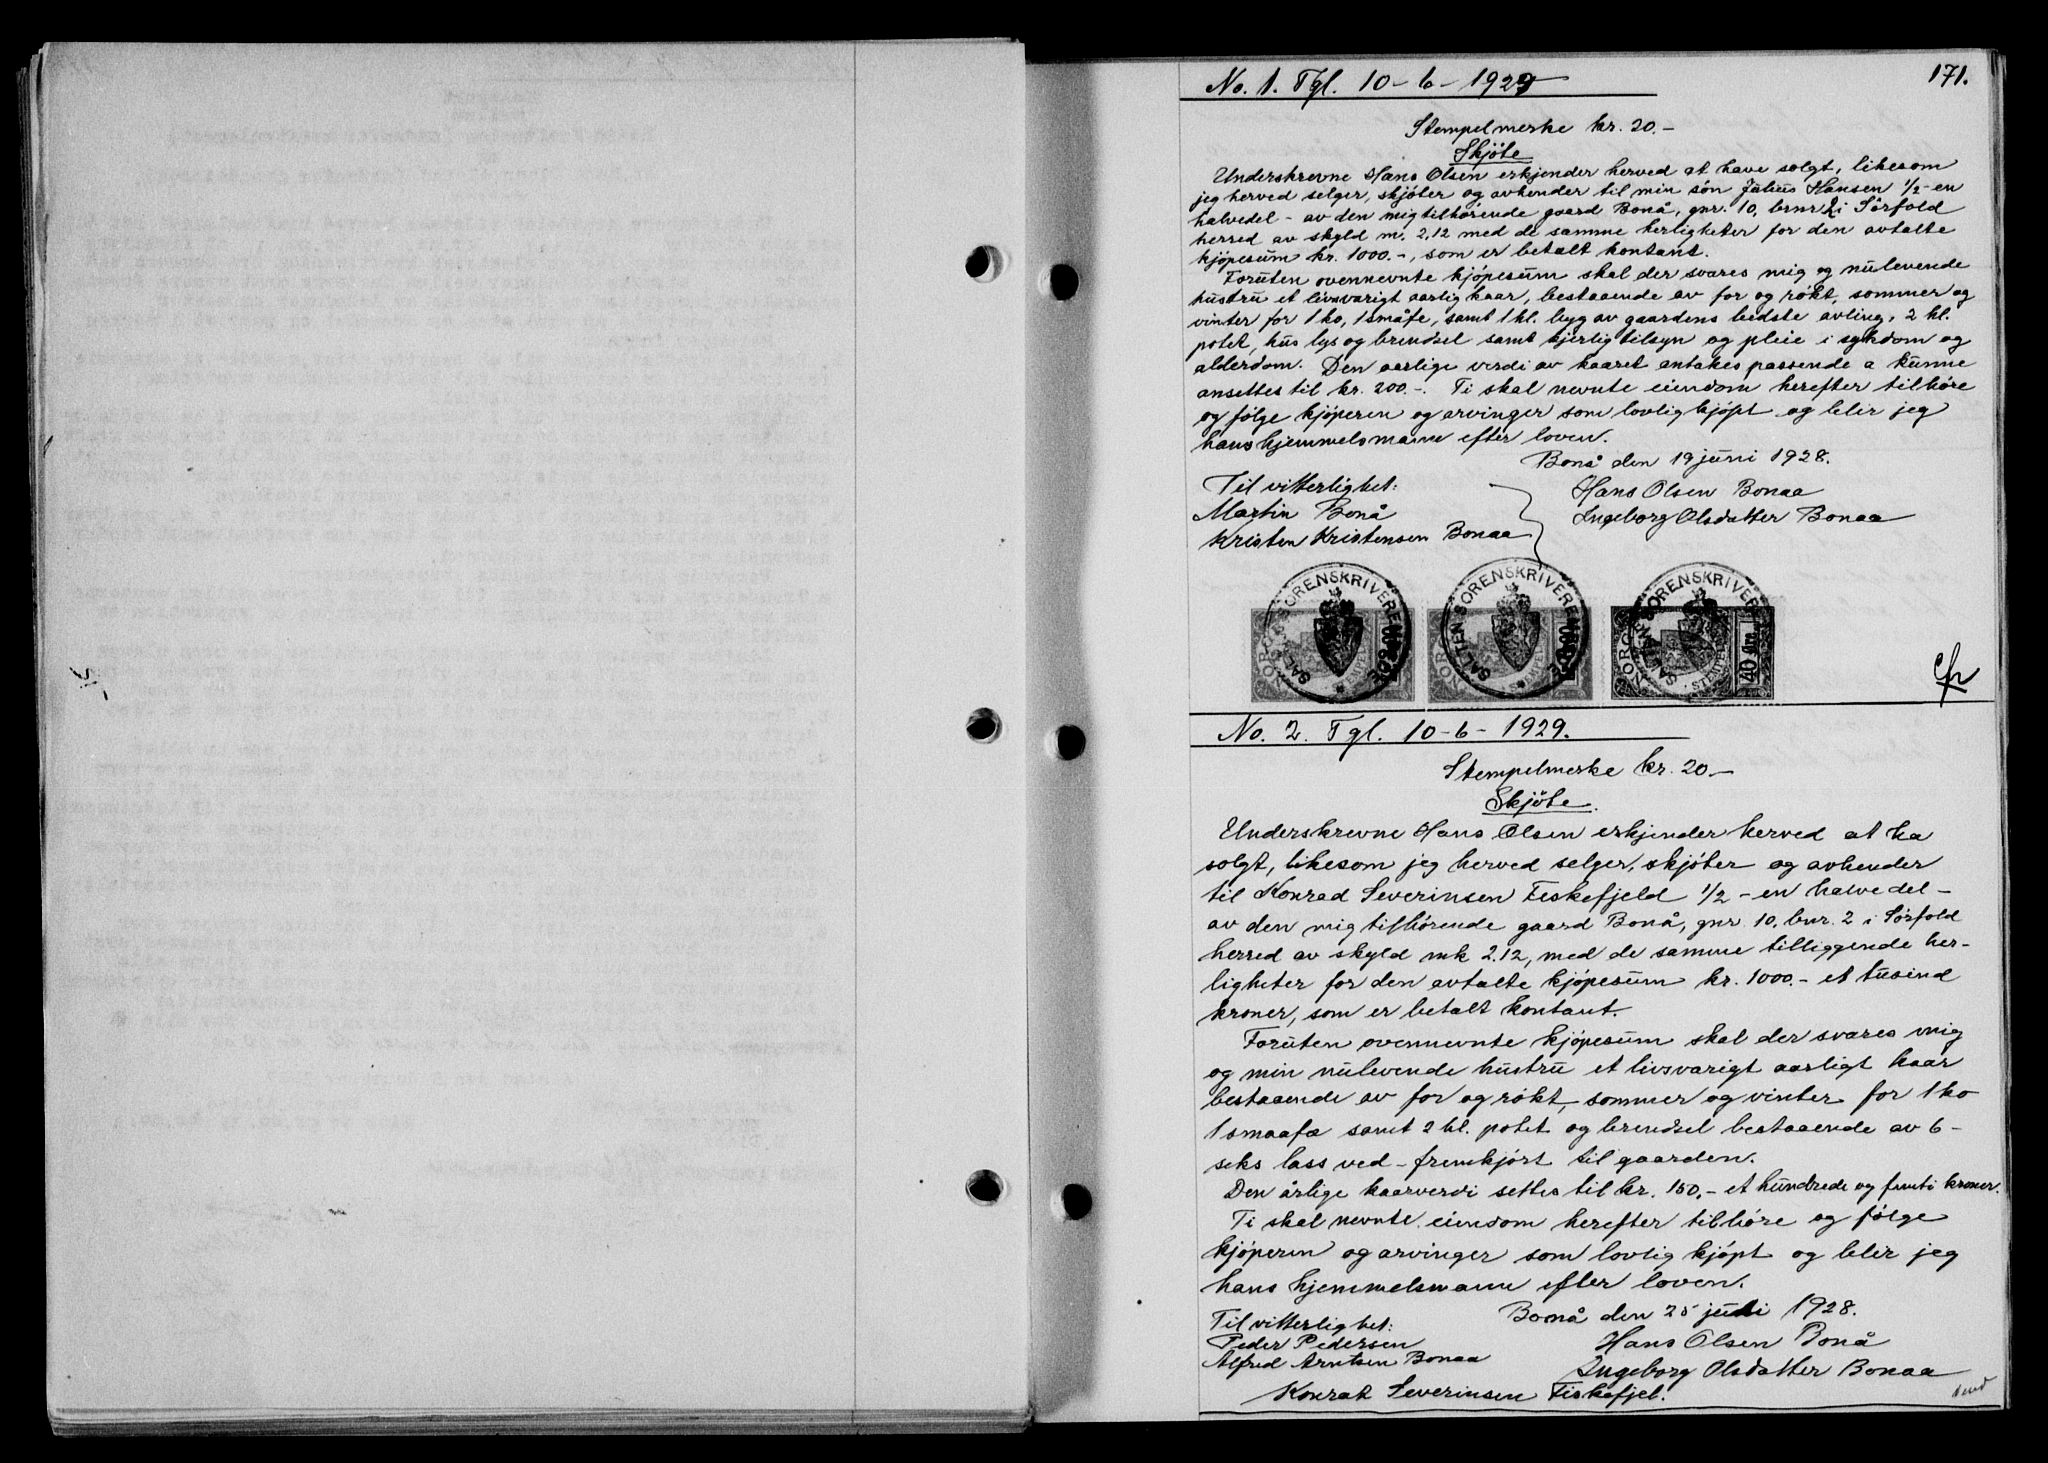 171.
No. 1. Tgl. 10-6-1929
Stempelmerke kr. 20.-
Skjöte
Underskrevne Hans Olsen erkjender herved at have solgt, likesom
jeg herved selger, skjöter og avhender til min sön Julius Hansen 1/2 - en
halvedel - av den mig tilhörende gaard Bonå, gnr. 10, brnr 2 i Sörfold
herred av skyld m. 2,12 med de samme herligheter for den avtalte
kjöpesum kr. 1000.-, som er betalt kontant.
Foruten ovennevnte kjöpesum skal der svares mig og nulevende
hustru et livsvarigt aarlig kaar, bestaaende av for og rökt, sommer og
vinter for 1 ko, 1 småfe, samt 1 hl. byg av gaardens bedste avling, 2 hl.
potet, hus lys og brendsel samt kjerlig tilsyn og pleie i sykdom og
alderdom. Den aarlige verdi av kaaret antakes passende a kunne
ansettes til kr. 200.-. Ti skal nevnte eiendom herefter tilhöre
og fölge kjöperen og arvinger som lovlig kjöpt og blir jeg
hans hjemmelsmann efter loven.
Bonå den 19 juni 1928.
Til vitterlighet: Hans Olsen Bonaa
Martin Bonå Ingeborg Olsdatter Bonaa
Kristen Kristensen Bonaa
SALTEN SORENSKRIVEREN NORGE STEMPEL
SALTEN SORENSKRIVEREN NORGE STEMPEL
SALTEN SORENSKRIVEREN NORGE STEMPEL 40 Øre
No. 2. Tgl. 10-6-1929.
Stempelmerke kr. 20-
Skjöte.
Underskrevne Hans Olsen erkjender herved at ha
solgt, likesom jeg herved selger, skjöter og avhender
til Konrad Severinsen Fiskefjeld 1/2 - en halvedel -
av den mig tilhörende gaard Bonå, gnr. 10, bnr. 2 i Sörfold
herred av skyld mk 2.12, med de samme tilliggende her-
ligheter for den avtalte kjöpesum kr. 1000.- et tusind
kroner, som er betalt kontant.
Foruten ovennevnte kjöpesum skal der svares mig
og min nulevende hustru et livsvarigt aarligt kaar
bestaaende av for og rökt, sommer og vinter for 1 ko
1 smaafæ samt 2 hl. potet og brendsel bestaaende av 6-
seks lass ved - fremkjört til gaarden.
Den årlige kaarverdi settes til kr. 150,- et hundrede og femti kroner.
Ti skal nevnte eiendom herefter tilhöre og fölge
kjöperen og arvinger som lovlig kjöpt og blir jeg
hans hjemmelsmann efter loven.
Bonå den 25 juli 1928.
Til vitterlighet:
Peder Pedersen Hans Olsen Bonå
Alfred Arntsen Bonaa Ingeborg Olsdatter Bonaa
Konrat Severinsen Fiskefjel.